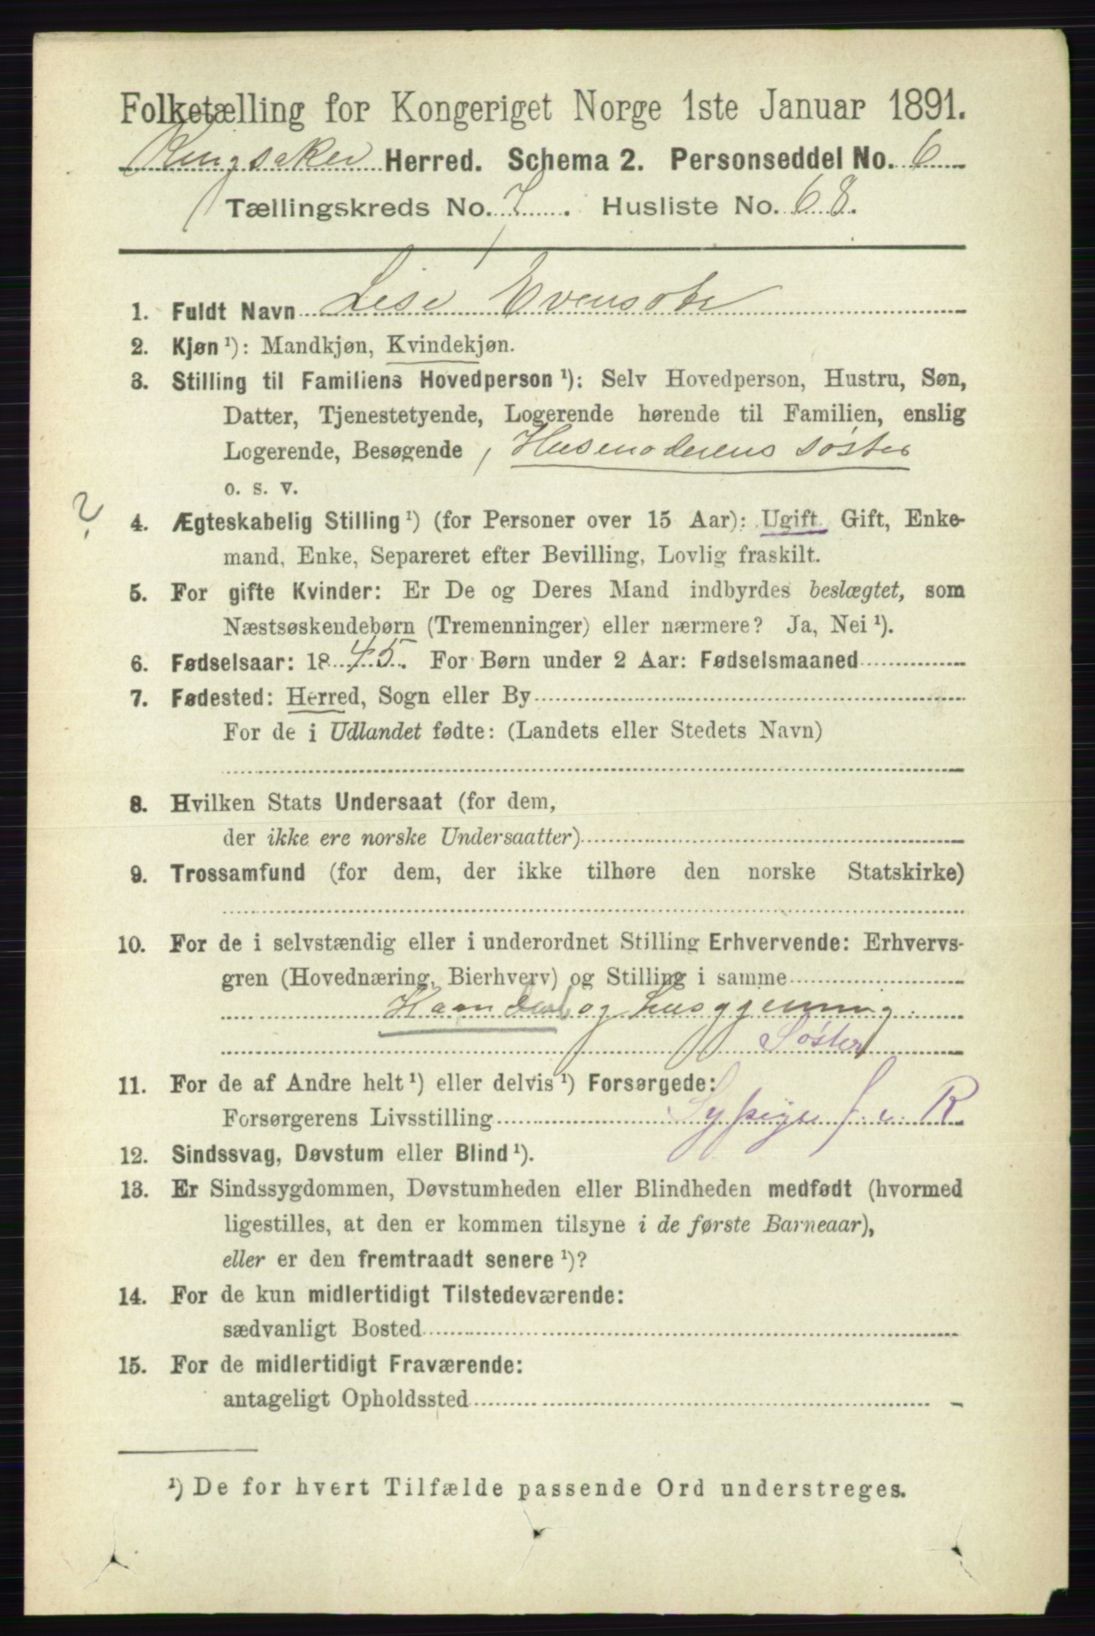 Folketælling for Kongeriget Norge 1ste Januar 1891.
Ringsaker Herred. Schema 2. Personseddel No. 6
Tællingskreds No. 7. Husliste No. 68.
1. Fuldt Navn Lise Evensdtr
2. Kjøn ¹): Mandkjøn, Kvindekjøn.
3. Stilling til Familiens Hovedperson ¹): Selv Hovedperson, Hustru, Søn,
Datter, Tjenestetyende, Logerende hørende til Familien, enslig
Logerende, Besøgende, Husmoderens søster
o. s. v.
?
4. Ægteskabelig Stilling ¹) (for Personer over 15 Aar): Ugift, Gift, Enke-
mand, Enke, Separeret efter Bevilling, Lovlig fraskilt.
5. For gifte Kvinder: Er De og Deres Mand indbyrdes beslægtet, som
Næstsøskendebørn (Tremenninger) eller nærmere? Ja, Nei ¹).
6. Fødselsaar: 1845. For Børn under 2 Aar: Fødselsmaaned
7. Fødested: Herred, Sogn eller By
For de i Udlandet fødte: (Landets eller Stedets Navn)
8. Hvilken Stats Undersaat (for dem,
der ikke ere norske Undersaatter)
9. Trossamfund (for dem, der ikke tilhøre den norske Statskirke)
10. For de i selvstændig eller i underordnet Stilling Erhvervende: Erhvervs-
gren (Hovednæring, Bierhverv) og Stilling i samme
og husgjerning.
Søster
11. For de af Andre helt ¹) eller delvis ¹) Forsørgede:
Forsørgerens Livsstilling Sypige f. e. R
12. Sindssvag, Døvstum eller Blind ¹).
13. Er Sindssygdommen, Døvstumheden eller Blindheden medfødt (hvormed
ligestilles, at den er kommen tilsyne i de første Barneaar),
eller er den fremtraadt senere ¹)?
14. For de kun midlertidigt Tilstedeværende:
sædvanligt Bosted
15. For de midlertidigt Fraværende:
antageligt Opholdssted
¹) De for hvert Tilfælde passende Ord understreges.